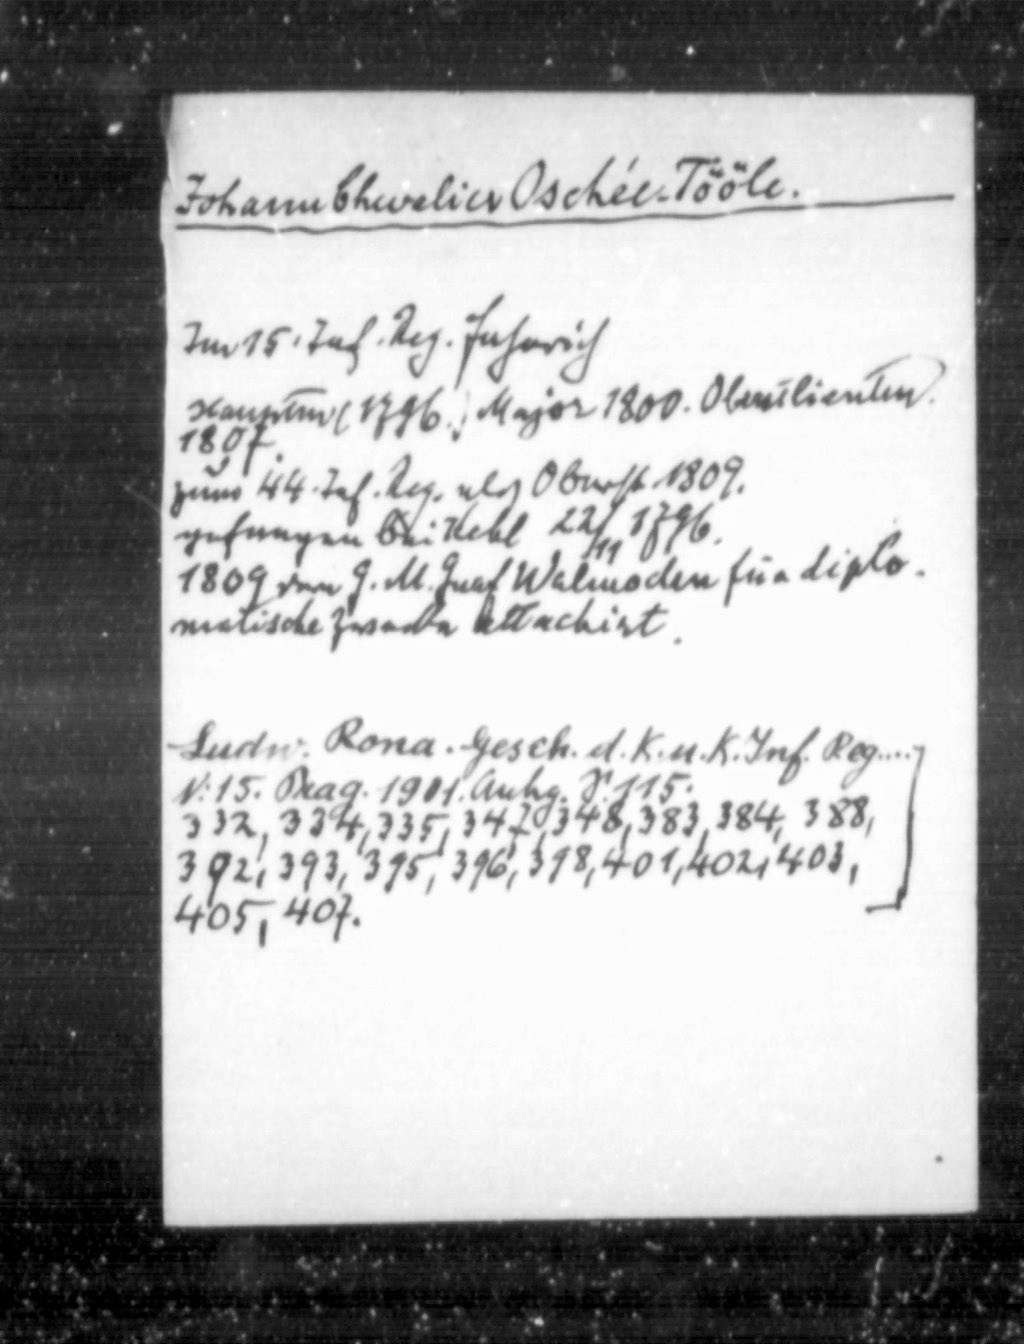 Johann Chevalier Oschée-Tööle.
Im 15. Inf. Reg. Fähnrich
Hauptm (1796.) Major 1800. Oberstlieutn.
1807.
zum 44. Inf. Reg. als Oberst 1809.
gefangen bei Kehl 22/11 1796.
1809 vom G. M. Graf Walmoden für diplo-
matische Zwecke attachirt.
Ludw. Rona. Gesch. d. K. u. K. Inf. Reg....
N: 15. Prag. 1901. Anhg. S. 115.
332, 334, 335, 347, 348, 383, 384, 388,
392, 393, 395, 396, 398, 401, 402, 403,
405, 407.